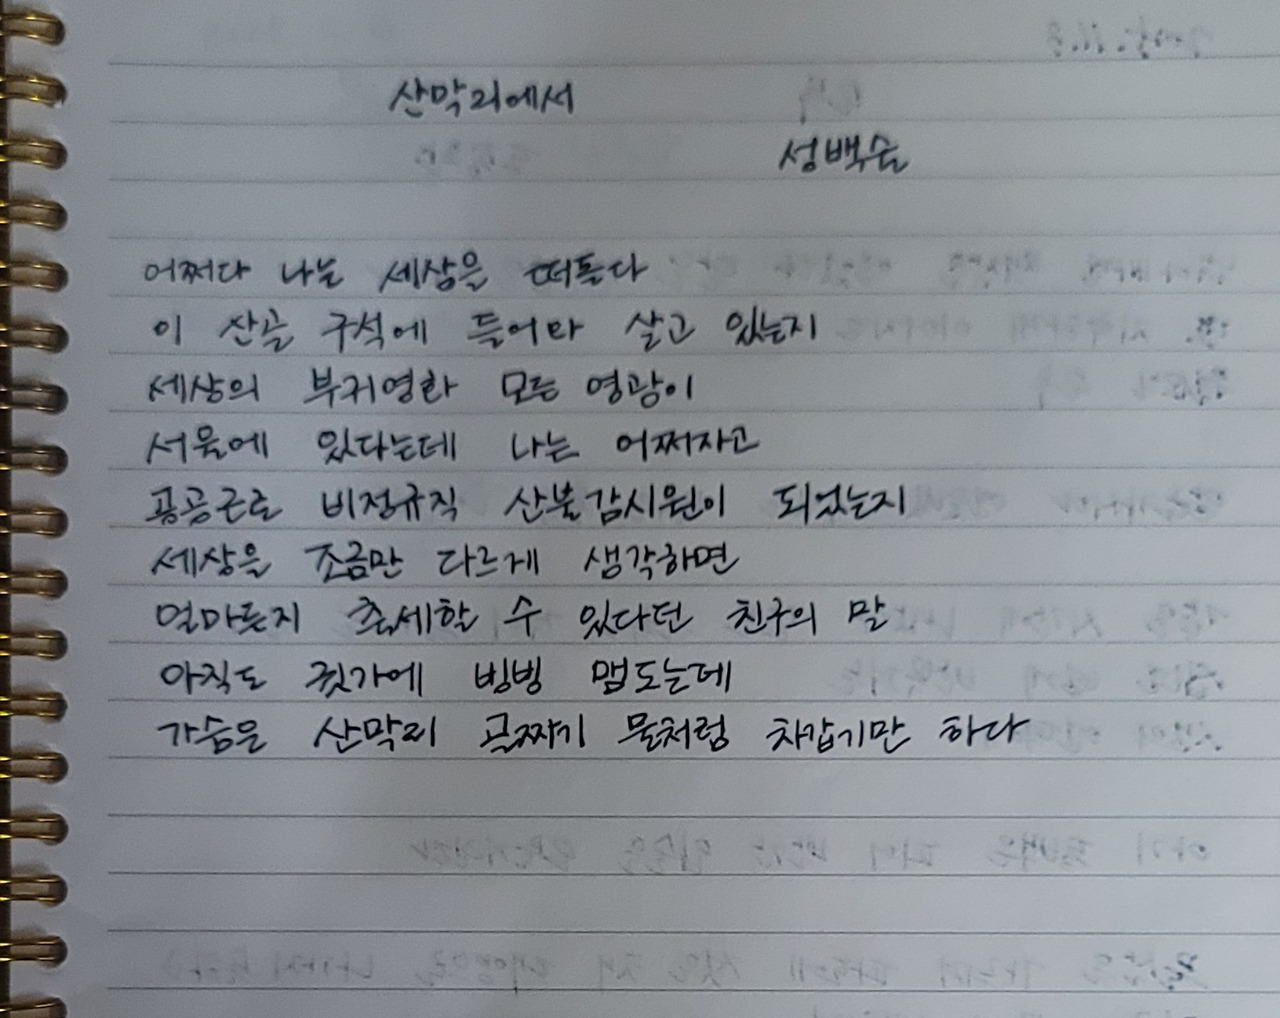 산막리에서
성백술
어쩌다 나는 세상을 떠돌다
이 산골 구석에 들어와 살고 있는지
세상의 부귀영화 모든 영광이
서울에 있다는데 나는 어쩌자고
공공근로 비정규직 산불감시원이 되었는지
세상을 조금만 다르게 생각하면
얼마든지 출세할 수 있다던 친구의 말
아직도 귓가에 빙빙 맴도는데
가슴은 산막리 골짜기 물처럼 차갑기만 하다